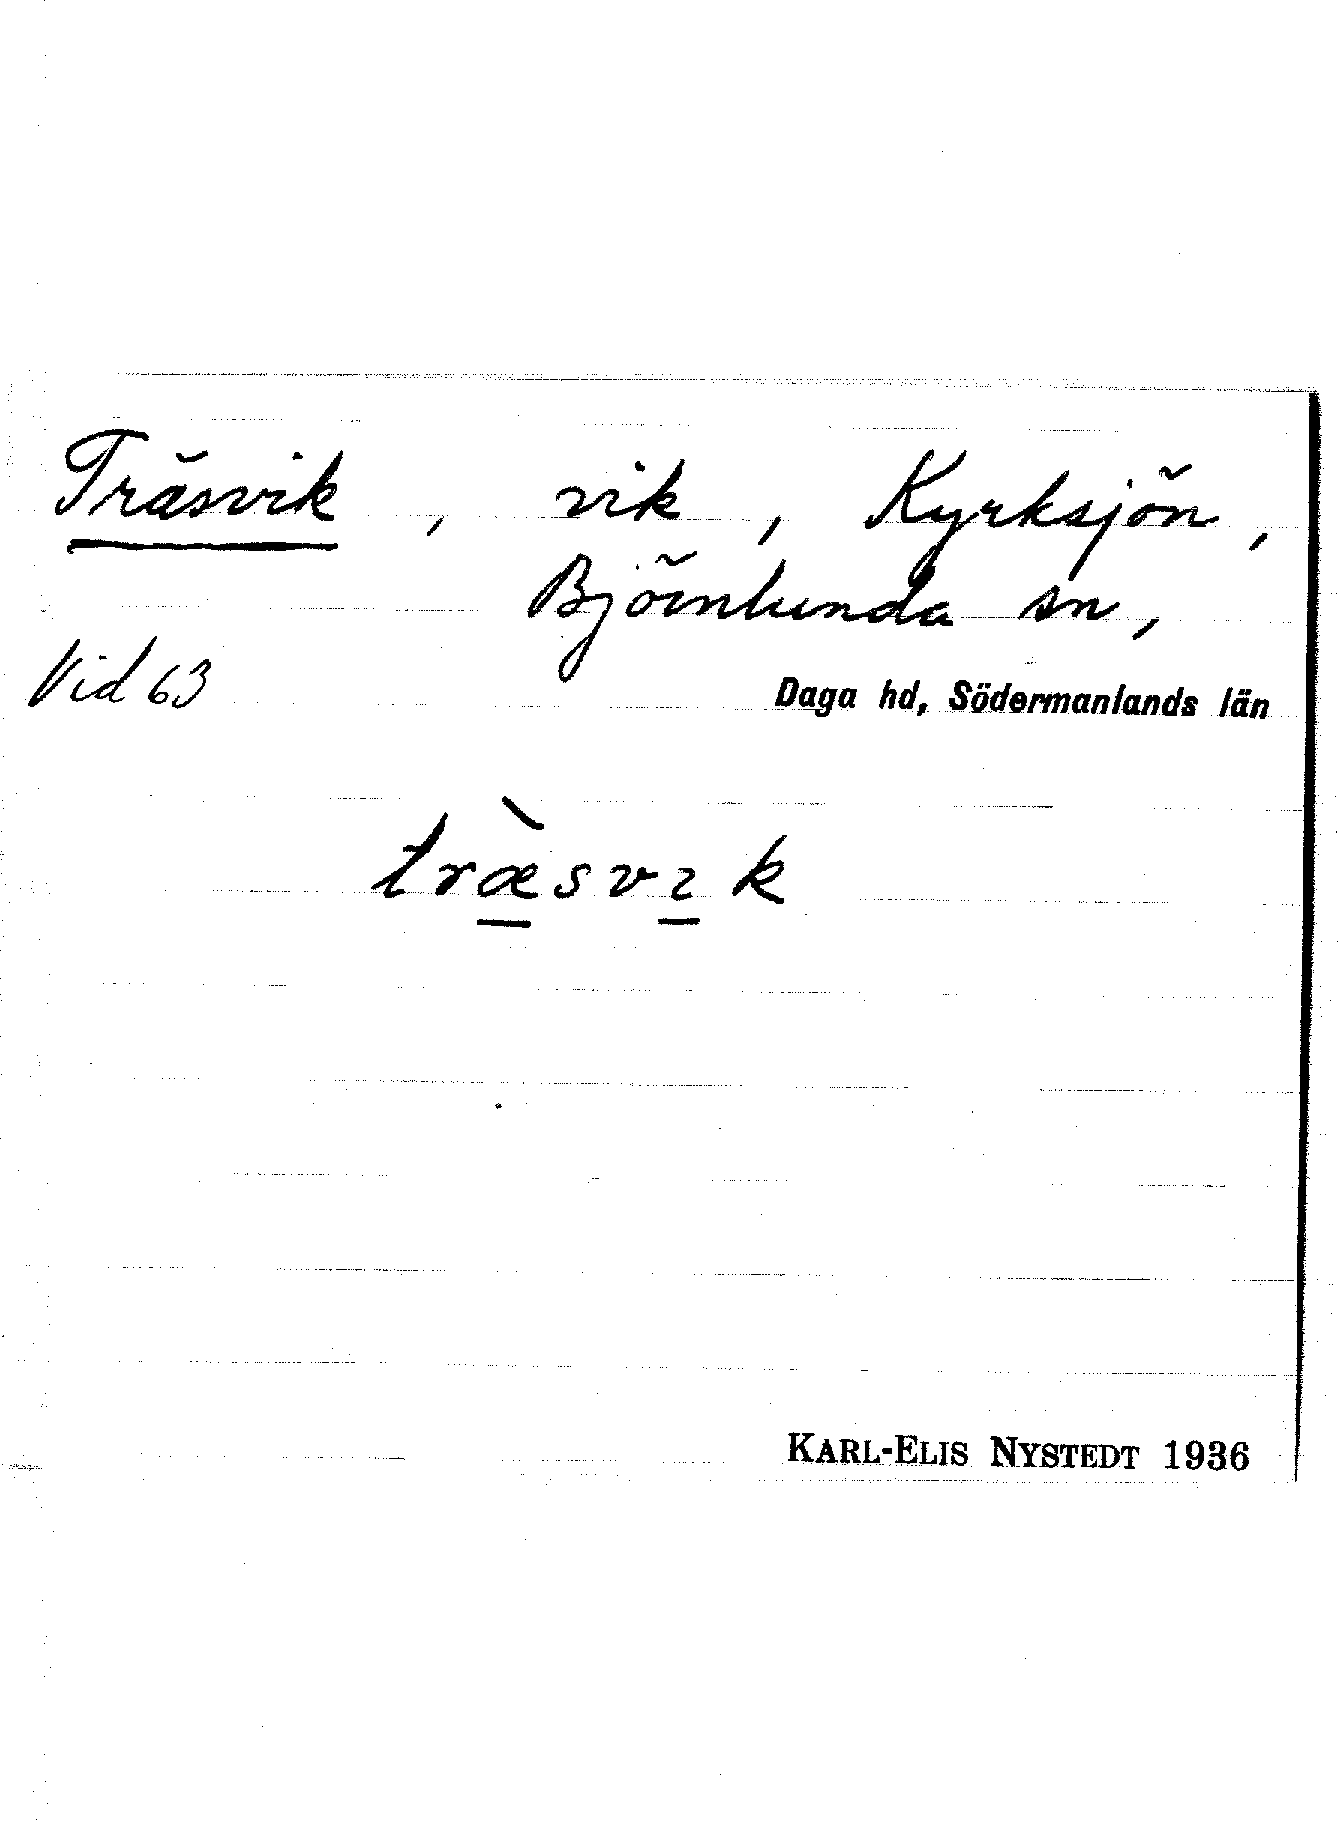 Träsvik, vik, Kyrksjön,
Björnlunda sn,
Vid 63 Daga hd, Södermanlands län
træ̀svɩk
KARL-ELIS NYSTEDT 1936